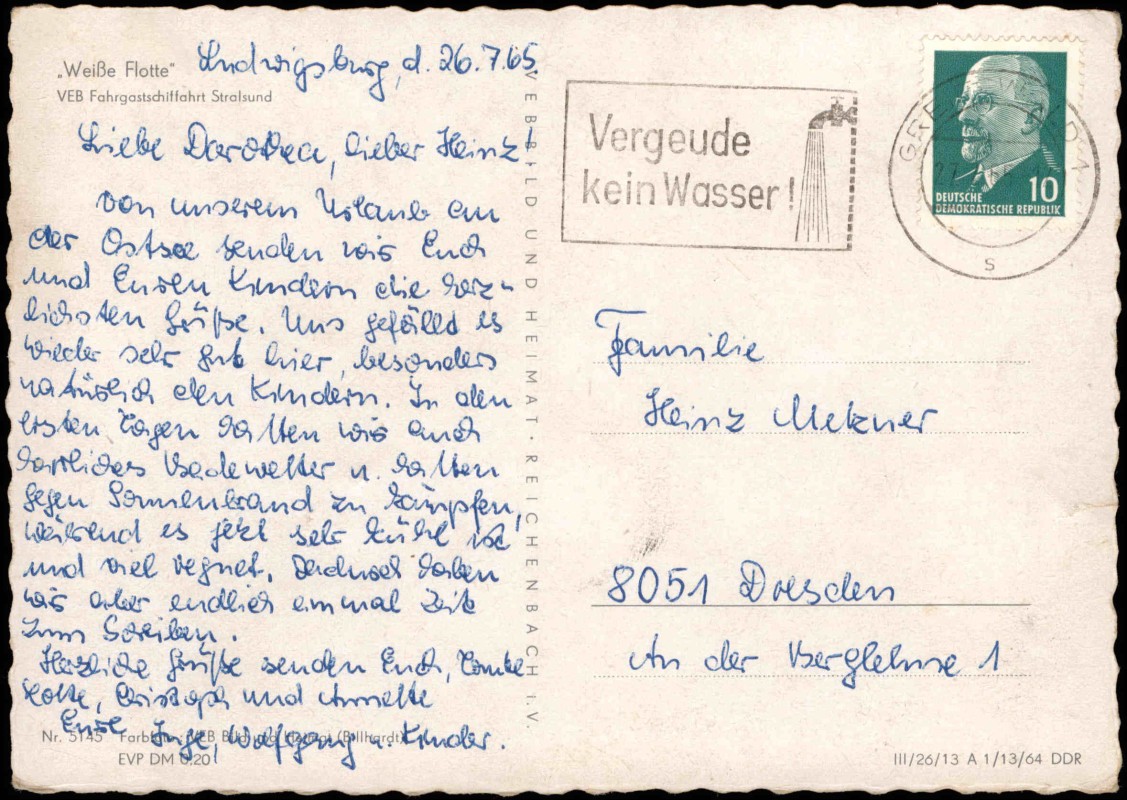 „Weiße Flotte"
VEB Fahrgastschiffahrt Stralsund
Ludwigsburg, d. 26.7.65
Liebe Dorothea, lieber Heinz!
Von unserem Urlaub an
der Ostsee senden wir Euch
und Euren Kindern die herz-
lichsten Grüße. Uns gefällt es
wieder sehr gut hier, besonders
natürlich den Kindern. In den
ersten Tagen hatten wir auch
herrliches Badewetter u. hatten
gegen Sonnenbrand zu kämpfen,
während es jetzt sehr kühl ist
und viel regnet. Dadurch haben
wir aber endlich einmal Zeit
zum Schreiben.
Herzliche Grüße senden Euch, Tante
Lotte, Christoph und Annette
Eure Inge, Wolfgang u. Kinder.
Nr. 5145 Farbfoto: VEB Bild und Heimat (Billhardt)
EVP DM 0.20
VEB BILD UND HEIMAT · REICHENBACH I. V.
Vergeude
kein Wasser!
GREIFSWALD 1
S
10
DEUTSCHE
DEMOKRATISCHE REPUBLIK
Familie
Heinz Metzner
8051 Dresden
An der Berglehne 1
III/26/13 A 1/13/64 DDR